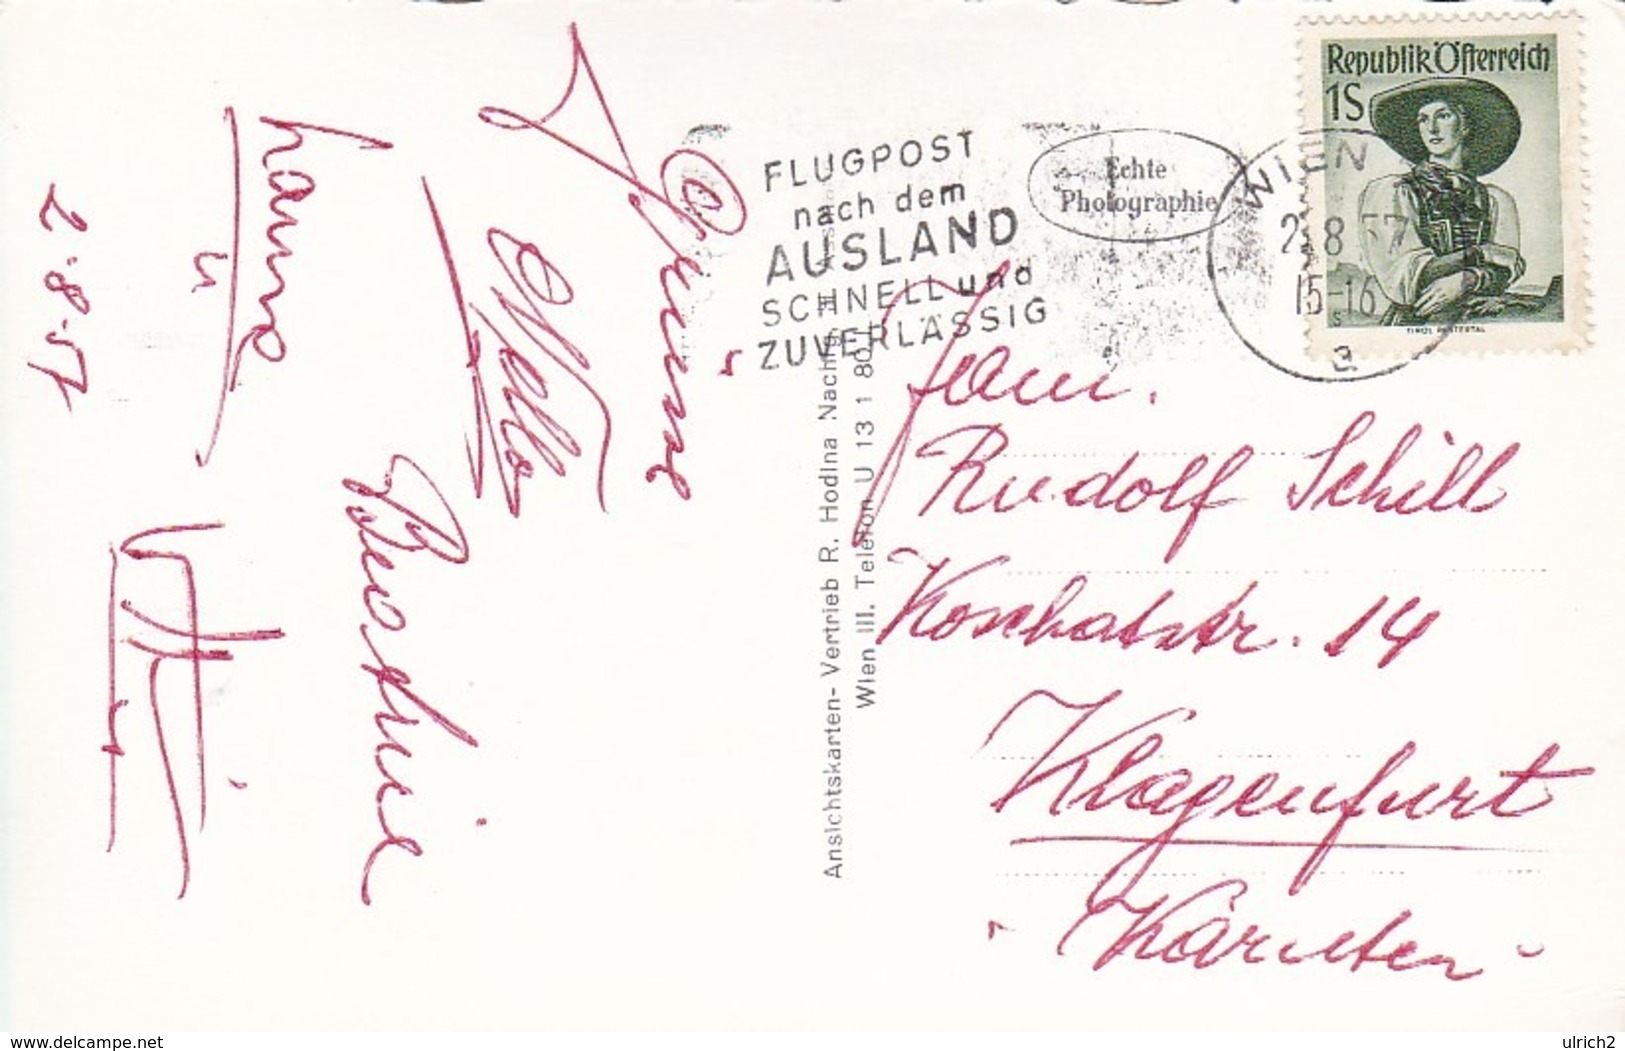 Republik Österreich
1S
TIROL PUSTERTAL
WIEN
2.8.57
15-16
a
FLUGPOST
nach dem
AUSLAND
SCHNELL und
ZUVERLÄSSIG
Echte
Photographie
Ansichtskarten-Vertrieb R. Hodina Nachf.
Wien III. Telefon U 13 1 80
Fam.
Rudolf Schill
Koschatstr. 14
Klagenfurt
Kärnten
2.8.57
www.delcampe.net
ulrich2